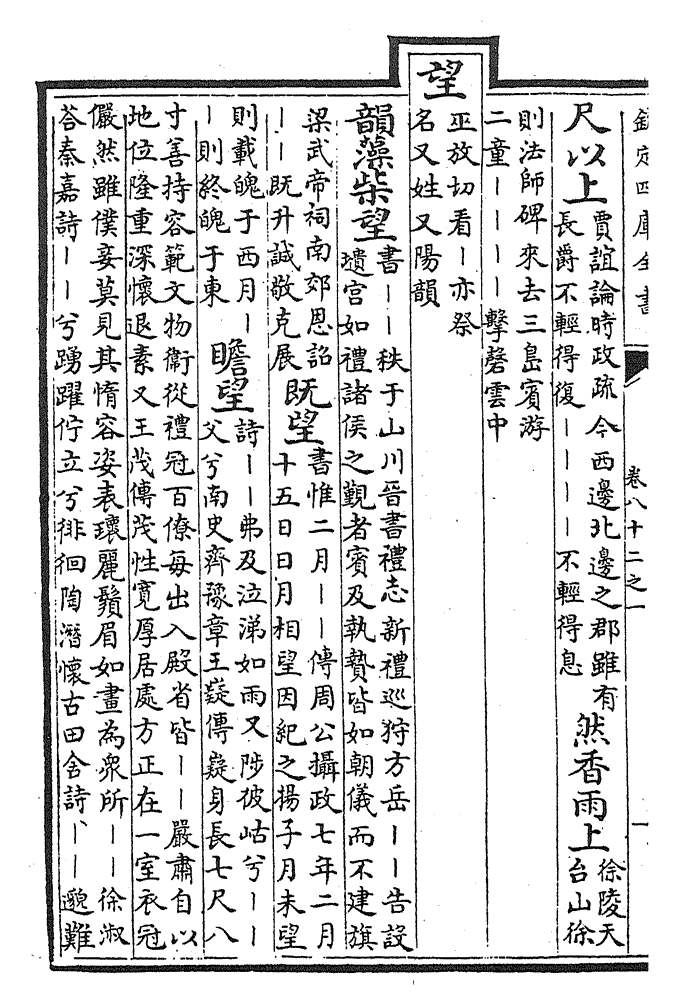 欽定四庫全書
卷八十二之一
一
尺以上
賈誼論時政疏今西邊北邊之郡雖有
長爵不輕得復丨丨丨丨不輕得息
然香雨上
徐陵天
台山徐
則法師碑來去三島賓游
二童丨丨丨丨擊磬雲中
望
巫放切看丨亦祭
名又姓又陽韻
韻藻
柴望
書丨丨秩于山川晉書禮志新禮巡狩方岳丨丨告設
壝宫如禮諸侯之覲者賓及執贄皆如朝儀而不建旗
梁武帝祠南郊恩詔
丨丨既升誠敬克展
既望
書惟二月丨丨傳周公攝政七年二月
十五日日月相望因紀之揚子月未望
則載魄于西月丨
丨則終魄于東
瞻望
詩丨丨弗及泣涕如雨又陟彼岵兮丨丨
父兮南史齊豫章王嶷傳嶷身長七尺八
寸善持容範文物衞從禮冠百僚每出入殿省皆丨丨嚴肅自以
地位隆重深懷退素又王茂傳茂性寬厚居處方正在一室衣冠
儼然雖僕妾莫見其惰容姿表瓌麗鬚眉如畫為衆所丨丨徐淑
荅秦嘉詩丨丨兮踴躍佇立兮徘徊陶潛懷古田舍詩丨丨邈難